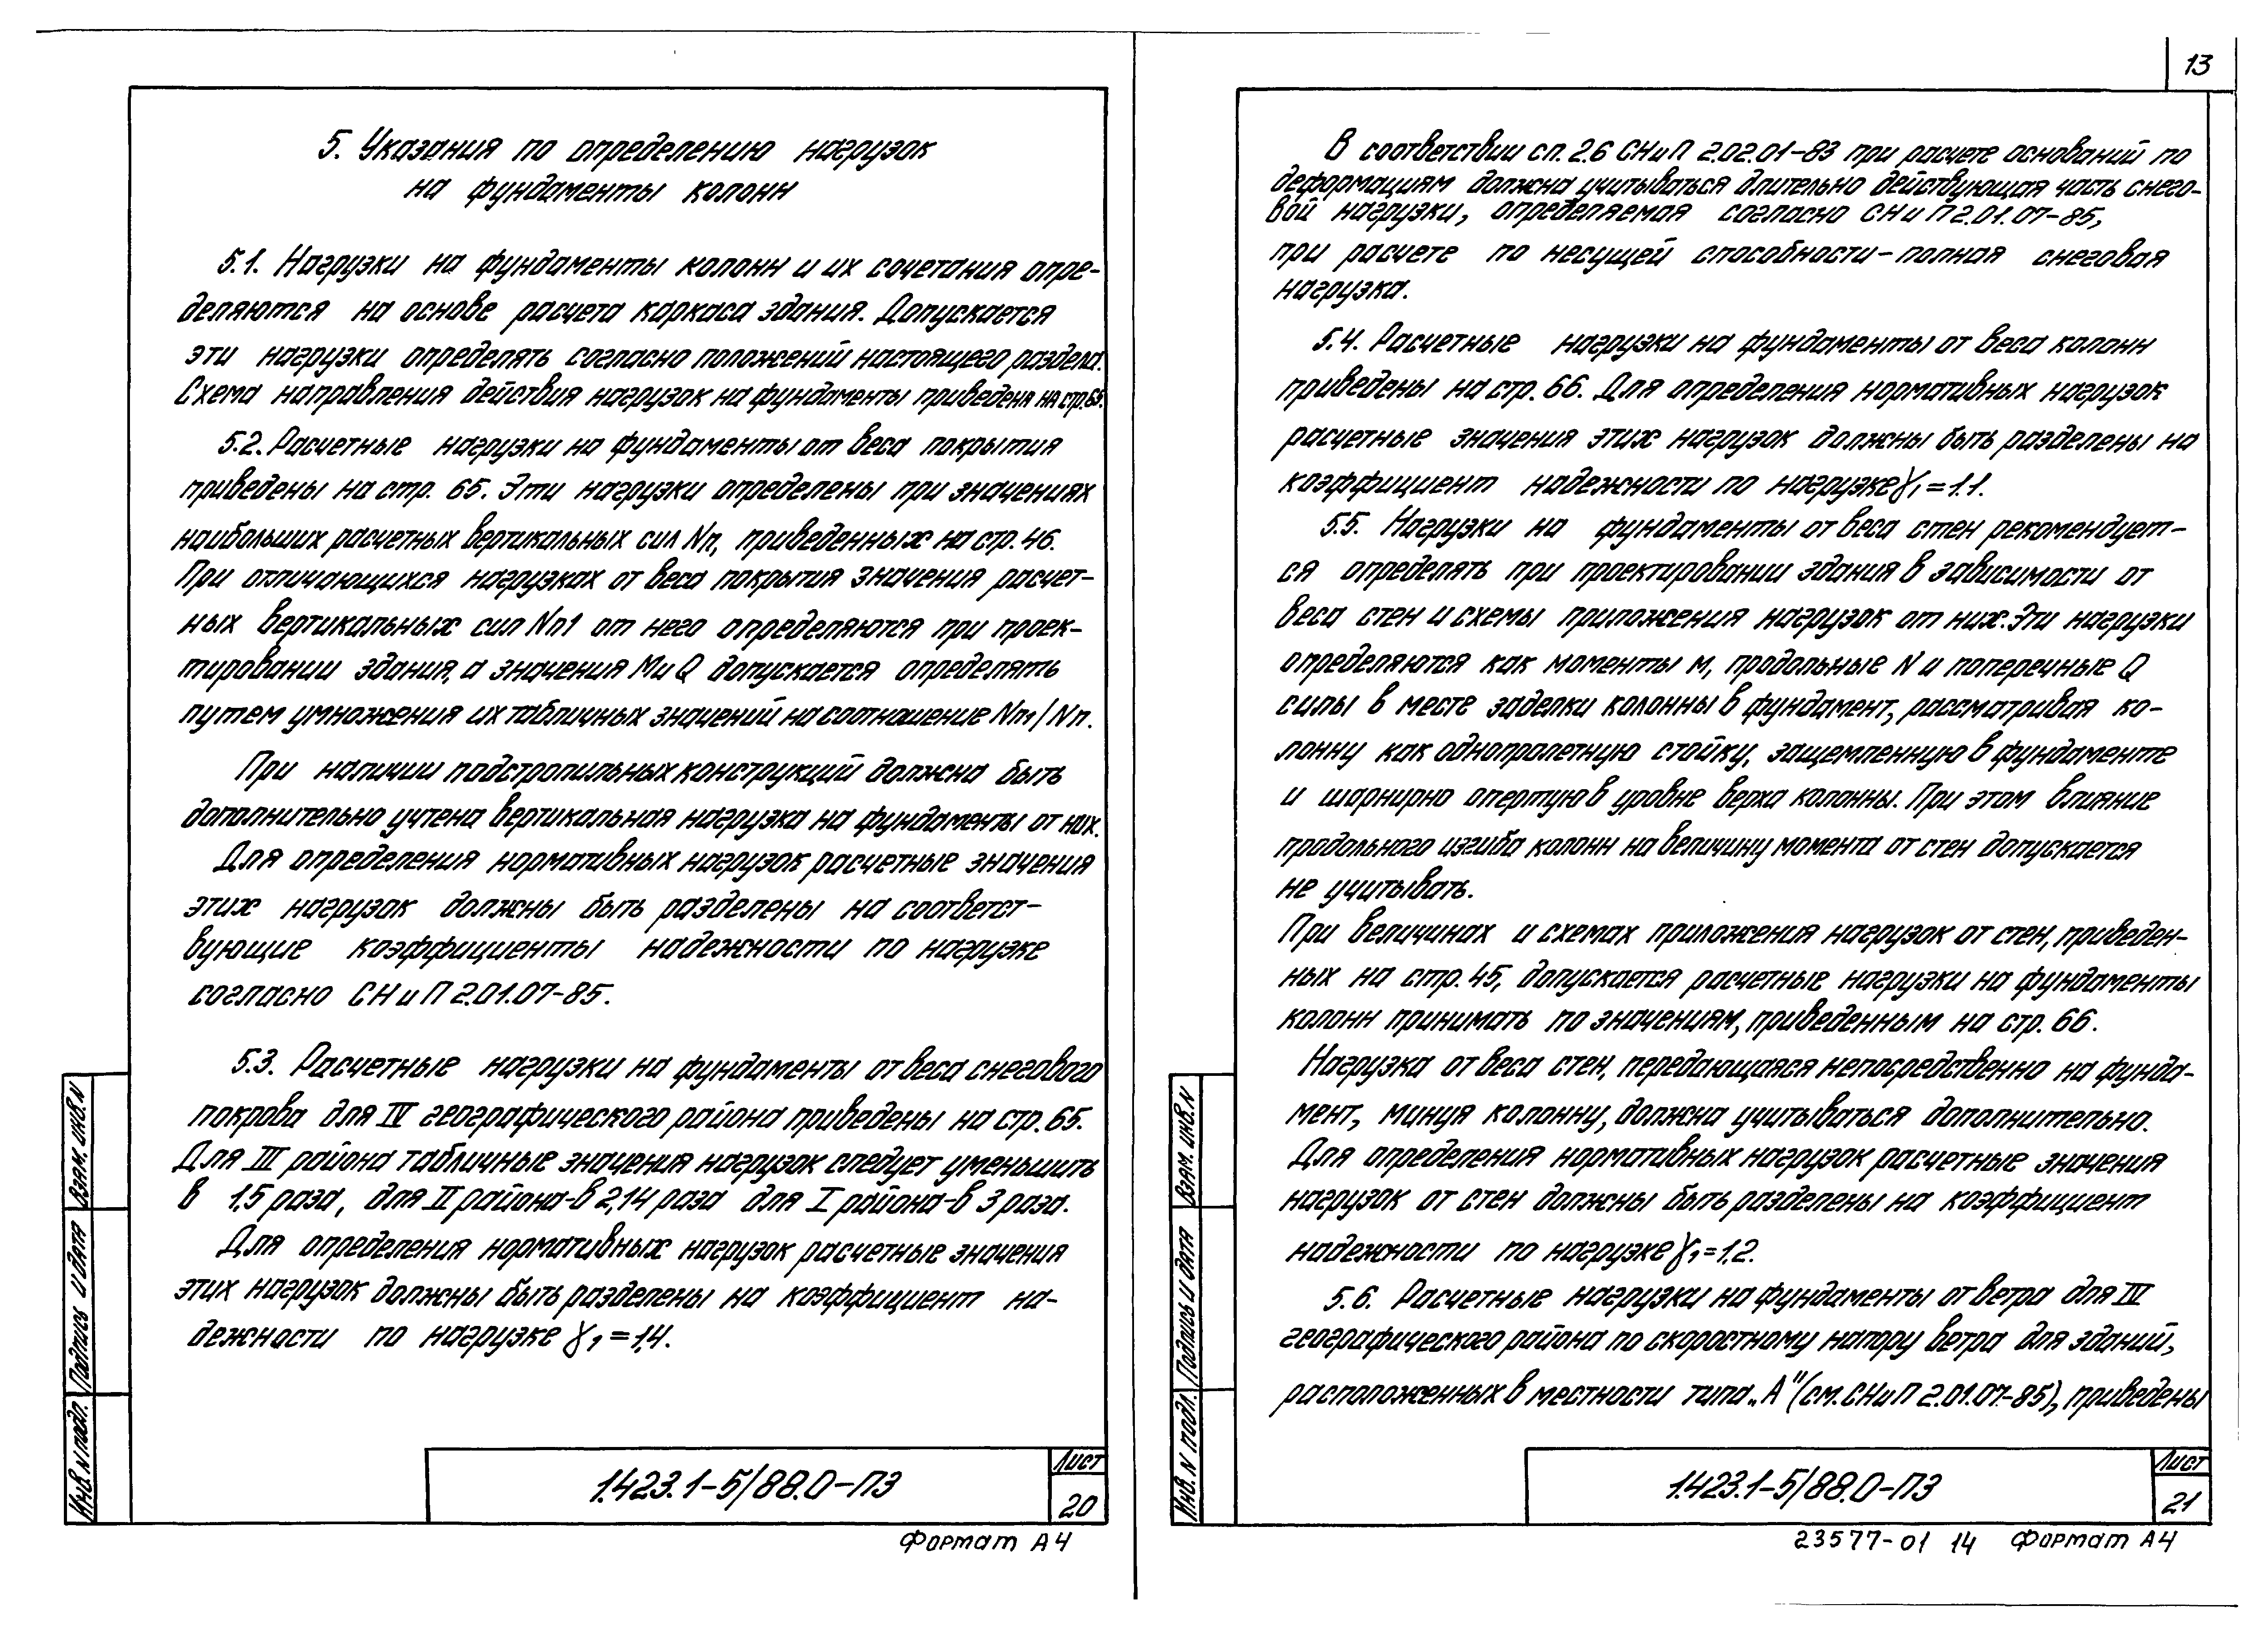 13
5. Указания по определению нагрузок
на фундаменты колонн
5.1. Нагрузки на фундаменты колонн и их сочетания опре-
деляются на основе расчета каркаса здания. Допускается
эти нагрузки определять согласно положений настоящего раздела.
Схема направления действия нагрузок на фундаменты приведена на стр.65.
5.2. Расчетные нагрузки на фундаменты от веса покрытия
приведены на стр. 65. Эти нагрузки определены при значениях
наибольших расчетных вертикальных сил Nп, приведенных на стр. 46.
При отличающихся нагрузках от веса покрытия значения расчет-
ных вертикальных сил Nп1 от него определяются при проек-
тировании здания, а значения М и Q допускается определять
путем умножения их табличных значений на соотношение Nп1/Nп.
При наличии подстропильных конструкций должна быть
дополнительно учтена вертикальная нагрузка на фундаменты от них.
Для определения нормативных нагрузок расчетные значения
этих нагрузок должны быть разделены на соответст-
вующие коэффициенты надежности по нагрузке
согласно СНиП 2.01.07-85.
5.3. Расчетные нагрузки на фундаменты от веса снегового
покрова для IV географического района приведены на стр. 65.
Для III района табличные значения нагрузок следует уменьшить
в 1,5 раза, для II района-в 2,14 раза для I района-в 3 раза.
Для определения нормативных нагрузок расчетные значения
этих нагрузок должны быть разделены на коэффициент на-
дежности по нагрузке γ1=1,4.
Инв.N подл. Подпись и дата Взам. инв.N
1.423.1-5/88.0-ПЗ
Лист
20
Формат А4
В соответствии с п. 2.6 СНиП 2.02.01-83 при расчете оснований по
деформациям должна учитываться длительно действующая часть снего-
вой нагрузки, определяемая согласно СНиП 2.01.07-85,
при расчете по несущей способности-полная снеговая
нагрузка.
5.4. Расчетные нагрузки на фундаменты от веса колонн
приведены на стр. 66. Для определения нормативных нагрузок
расчетные значения этих нагрузок должны быть разделены на
коэффициент надежности по нагрузке γ1=1.1.
5.5. Нагрузки на фундаменты от веса стен рекомендует-
ся определять при проектировании здания в зависимости от
веса стен и схемы приложения нагрузок от них. Эти нагрузки
определяются как моменты М, продольные N и поперечные Q
силы в месте заделки колонны в фундамент, рассматривая ко-
лонну как однопролетную стойку, защемленную в фундаменте
и шарнирно опертую в уровне верха колонны. При этом влияние
продольного изгиба колонн на величину момента от стен допускается
не учитывать.
При величинах и схемах приложения нагрузок от стен, приведен-
ных на стр. 45, допускается расчетные нагрузки на фундаменты
колонн принимать по значениям, приведенным на стр. 66.
Нагрузка от веса стен, передающаяся непосредственно на фунда-
мент, минуя колонну, должна учитываться дополнительно.
Для определения нормативных нагрузок расчетные значения
нагрузок от стен должны быть разделены на коэффициент
надежности по нагрузке γ1=1,2.
5.6. Расчетные нагрузки на фундаменты от ветра для IV
географического района по скоростному напору ветра для зданий,
расположенных в местности типа „А" (см. СНиП 2.01.07-85), приведены
Инв. N подл. Подпись и дата Взам. инв.N
1.423.1-5/88.0-ПЗ
Лист
21
23577-01 14 Формат А4